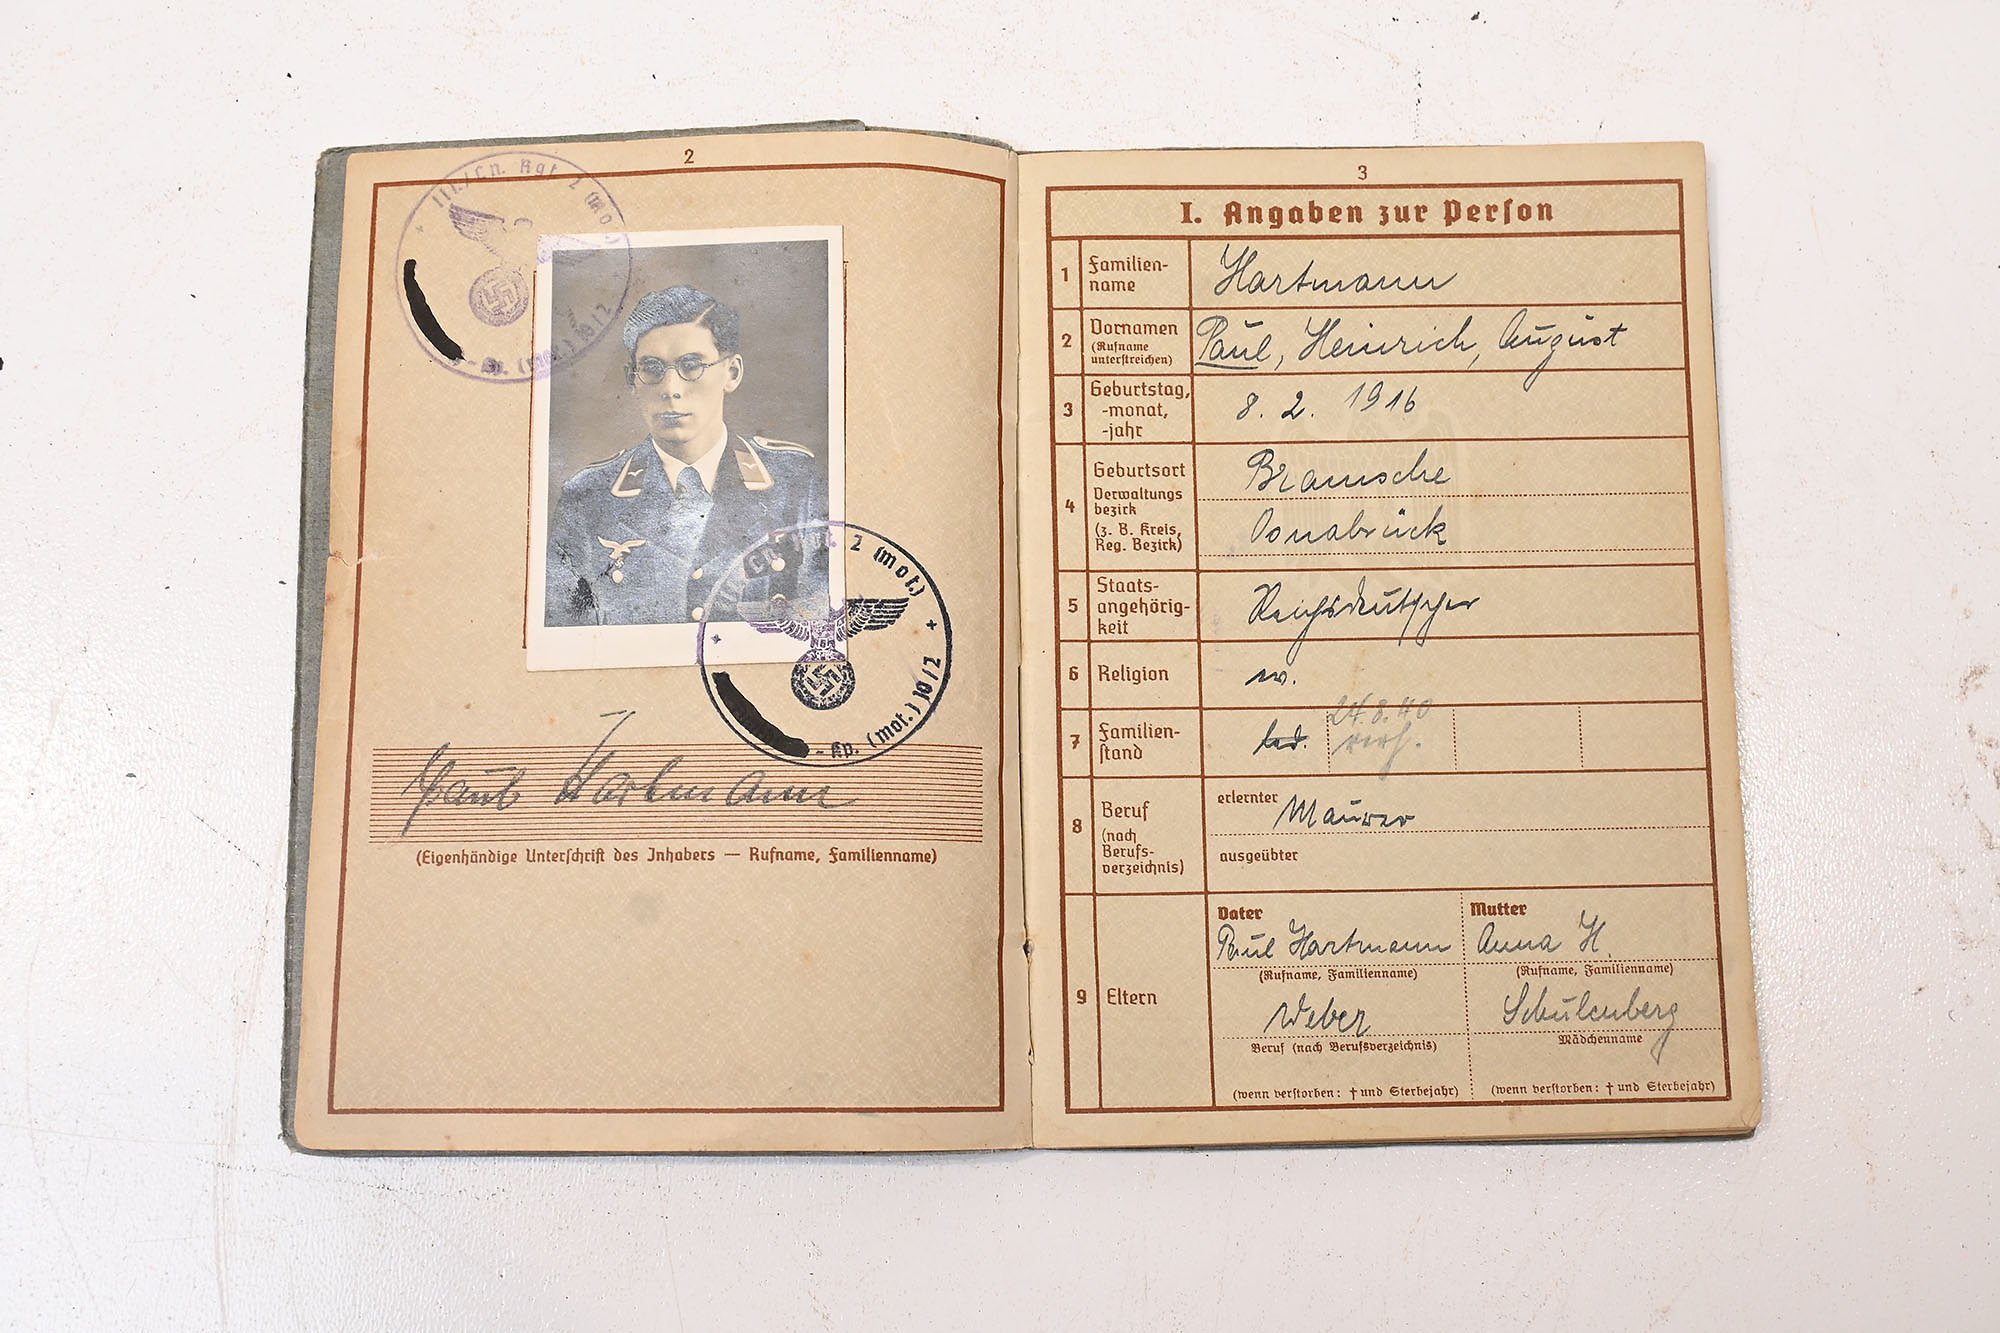 2
III./Ln. Rgt. 2 (mot.)
-Kp. (mot.) 10/2
III./Ln. Rgt. 2 (mot.)
-Kp. (mot.) 10/2
Paul Hartmann
(Eigenhändige Unterschrift des Inhabers — Rufname, Familienname)
3
I. Angaben zur Person
1 Familien-
name
Hartmann
2 Vornamen
(Rufname
unterstreichen)
Paul, Heinrich, August
3 Geburtstag,
-monat,
-jahr
8. 2. 1916
4 Geburtsort
Verwaltungs
bezirk
(z. B. Kreis,
Reg. Bezirk)
Bramsche
Osnabrück
5 Staats-
angehörig-
keit
Reichsdeutscher
6 Religion
ev.
7 Familien-
stand
led.
24.8.40
verh.
8 Beruf
(nach
Berufs-
verzeichnis)
erlernter Maurer
ausgeübter
9 Eltern
Vater
Paul Hartmann
(Rufname, Familienname)
Weber
Beruf (nach Berufsverzeichnis)
(wenn verstorben: † und Sterbejahr)
Mutter
Anna H.
(Rufname, Familienname)
Schulenberg
Mädchenname
(wenn verstorben: † und Sterbejahr)